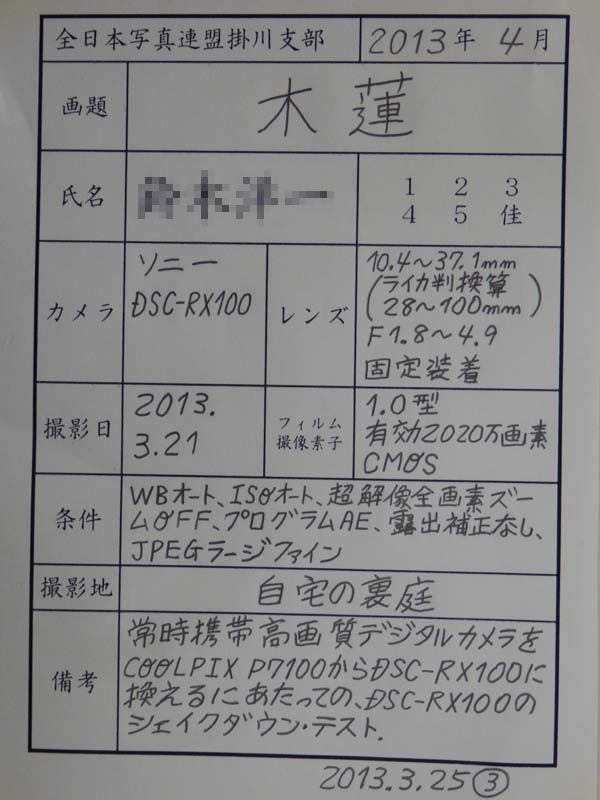 全日本写真連盟掛川支部 2013年 4月
画題 木蓮
氏名
1 2 3
4 5 佳
カメラ
ソニー
DSC-RX100
レンズ
10.4~37.1mm
(ライカ判換算
28~100mm)
F1.8~4.9
固定装着
撮影日
2013.
3.21
フィルム
撮像素子
1.0型
有効2020万画素
CMOS
条件
WBオート、ISOオート、超解像全画素ズー
ムOFF、プログラムAE、露出補正なし、
JPEGラージファイン
撮影地 自宅の裏庭
備考
常時携帯高画質デジタルカメラを
COOLPIX P7100からDSC-RX100に
換えるにあたっての、DSC-RX100の
シェイクダウン・テスト.
2013.3.25③